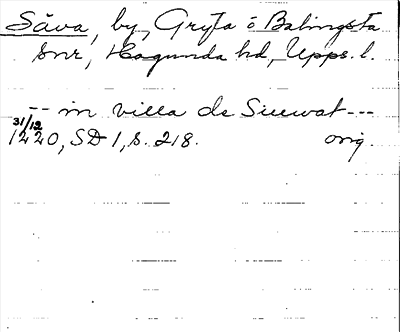 Såva, by, Gryta o Balingsta
snr, Hagunda hd, Upps. l.
-- in villa de Siuwat ---
31/12
1220, SD 1, s. 218. orig.